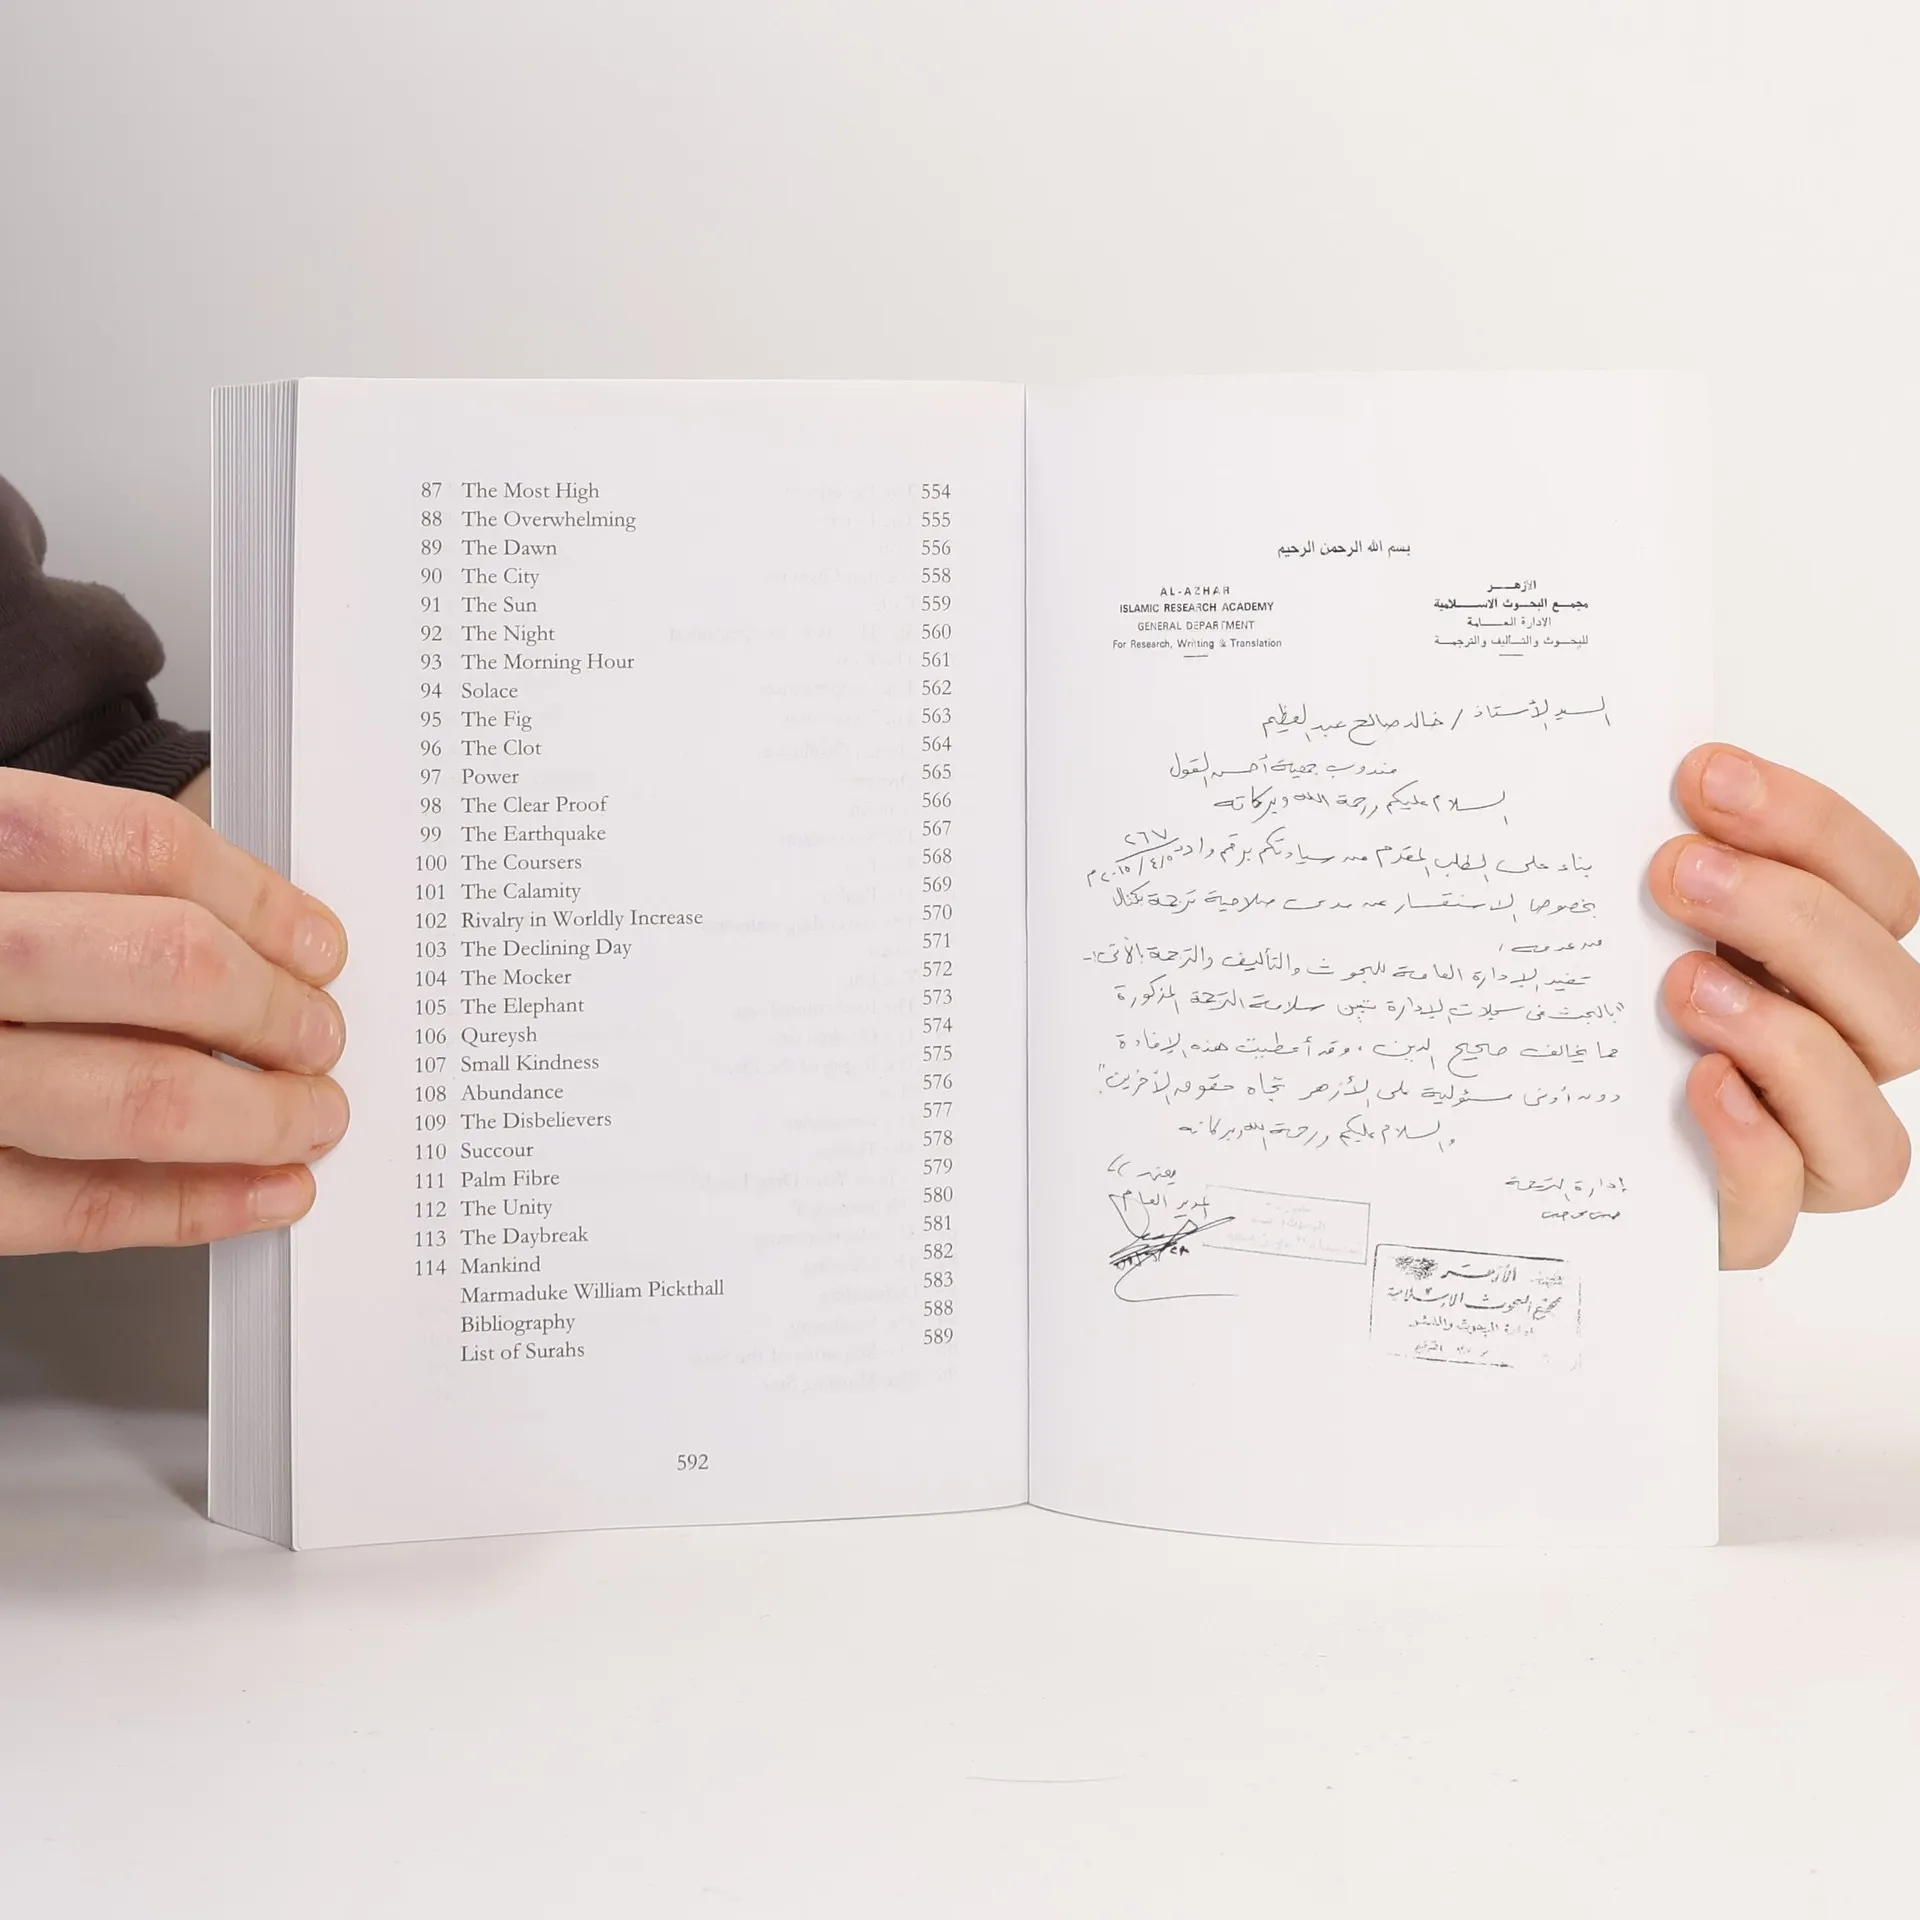 87 The Most High 554
88 The Overwhelming 555
89 The Dawn 556
90 The City 558
91 The Sun 559
92 The Night 560
93 The Morning Hour 561
94 Solace 562
95 The Fig 563
96 The Clot 564
97 Power 565
98 The Clear Proof 566
99 The Earthquake 567
100 The Coursers 568
101 The Calamity 569
102 Rivalry in Worldly Increase 570
103 The Declining Day 571
104 The Mocker 572
105 The Elephant 573
106 Qureysh 574
107 Small Kindness 575
108 Abundance 576
109 The Disbelievers 577
110 Succour 578
111 Palm Fibre 579
112 The Unity 580
113 The Daybreak 581
114 Mankind 582
Marmaduke William Pickthall 583
Bibliography 588
List of Surahs 589
592
بسم الله الرحمن الرحيم
AL-AZHAR
ISLAMIC RESEARCH ACADEMY
GENERAL DEPARTMENT
For Research, Writing & Translation
الأزهـــر
مجمـع البحـوث الاســـلامية
الادارة العـــامة
للبحـوث والتـأليف والترجمـة
السيد الأستاذ / خالد صالح عبد العظيم
مندوب جمعية أحسن القول
السلام عليكم ورحمة الله وبركاته
بناء على الطلب المقدم من سيادتكم برقم وارد ٢٦٧
٢٠١٥/٤/٥ م
بخصوص الاستفسار عن مدى صلاحية ترجمة بكتال
من عدمه
تفيد الإدارة العامة للبحوث والتأليف والترجمة بالآتى :-
"بالبحث فى سجلات الإدارة تبين سلامة الترجمة المذكورة
مما يخالف صحيح الدين ، وقد أعطيت هذه الإفادة
دون أدنى مسئولية على الأزهر تجاه حقوق الآخرين"
والسلام عليكم ورحمة الله وبركاته
إدارة الترجمة
يعتمد ،،
المدير العام
الأزهر
مجمع البحوث الإسلامية